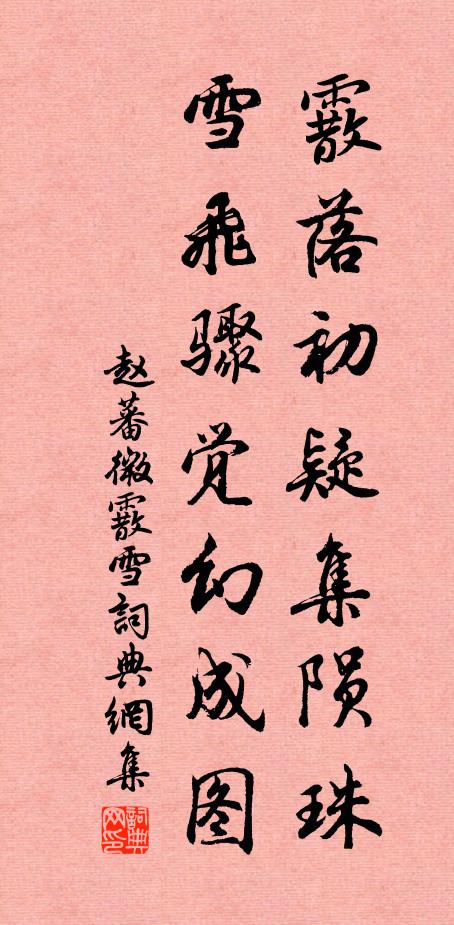 霰落初疑集陨珠
雪飛骤觉幻成图
赵蕃微霰雪詞典網集
詞典网印